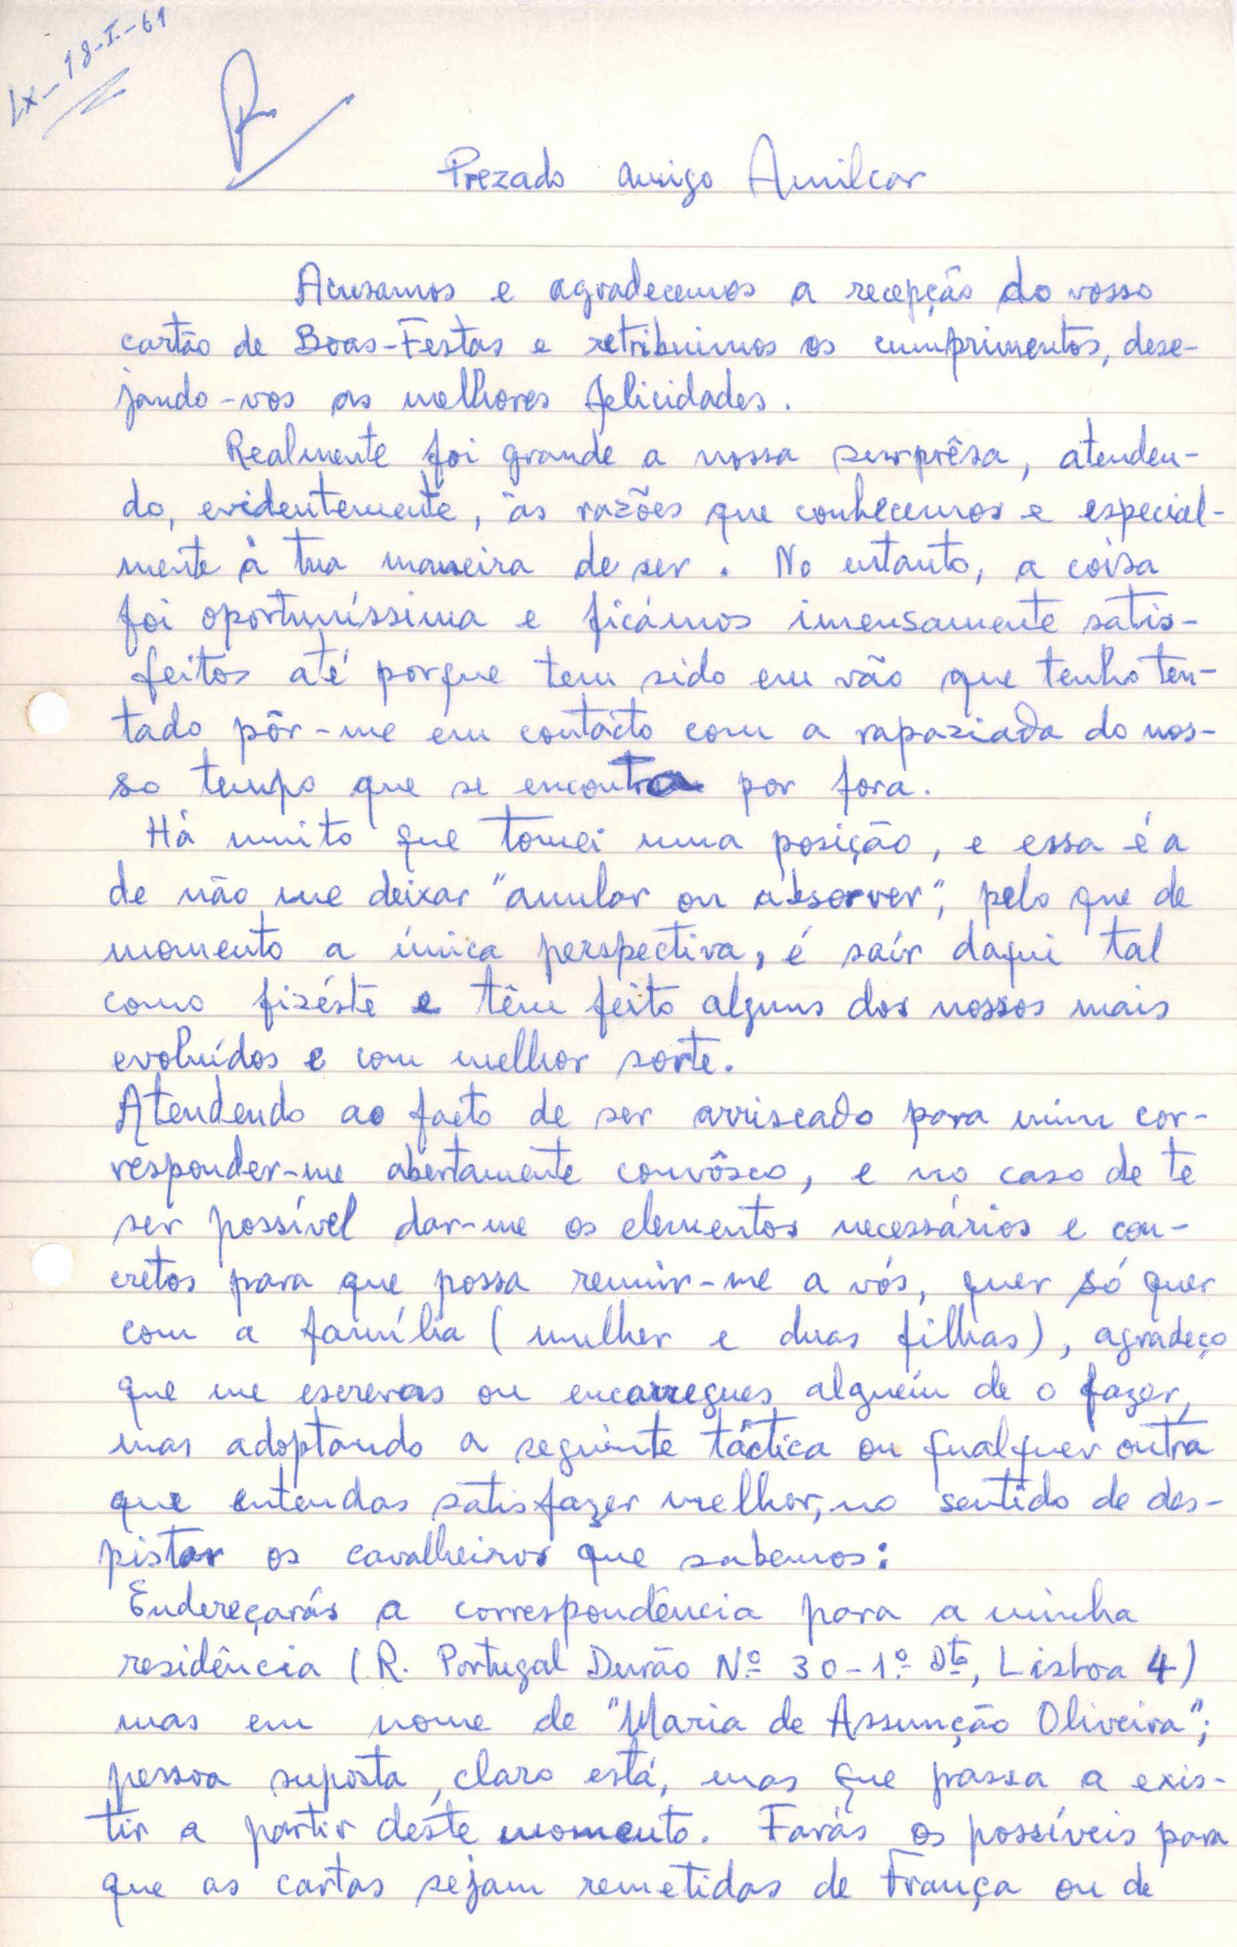 Lx-18-I-61
R
Prezado amigo Amilcar
Acusamos e agradecemos a recepção do vosso
cartão de Boas-Festas e retribuimos os cumprimentos, dese-
jando-vos as melhores felicidades.
Realmente foi grande a nossa surprêsa, atenden-
do, evidentemente, às razões que conhecemos e especial-
mente à tua maneira de ser. No entanto, a coisa
foi oportuníssima e ficámos imensamente satis-
feitos até porque tem sido em vão que tenho ten-
tado pôr-me em contácto com a rapaziada do nos-
so tempo que se encontra por fora.
Há muito que tomei uma posição, e essa é a
de não me deixar "anular ou absorver", pelo que de
momento a única perspectiva, é saír daqui tal
como fizéste e têm feito alguns dos nossos mais
evoluídos e com melhor sorte.
Atendendo ao facto de ser arriscado para mim cor-
responder-me abertamente convôsco, e no caso de te
ser possível dar-me os elementos necessários e con-
cretos para que possa reunir-me a vós, quer só quer
com a família (mulher e duas filhas), agradeço
que me escrevas ou encarregues alguém de o fazer,
mas adoptando a seguinte táctica ou qualquer outra
que entendas satisfazer melhor, no sentido de des-
pistar os cavalheiros que sabemos:
Endereçarás a correspondência para a minha
residência (R. Portugal Durão Nº 30-1º Dtº, Lisboa 4)
mas em nome de "Maria de Assunção Oliveira";
pessoa suposta, claro está, mas que passa a exis-
tir a partir deste momento. Farás os possíveis para
que as cartas sejam remetidas de França ou de